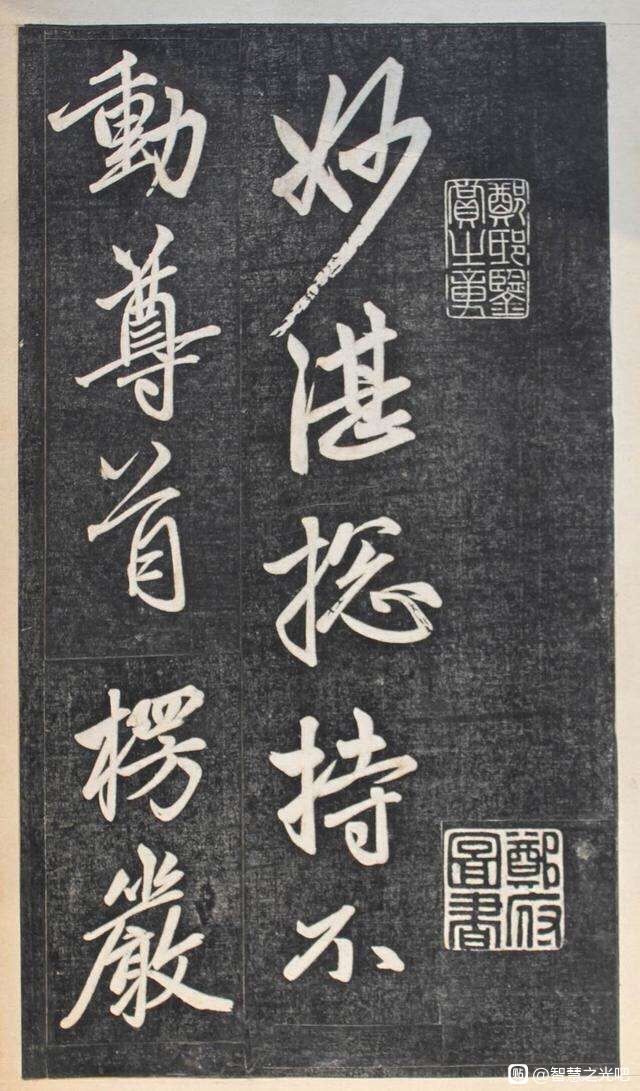 鄭邸鑒
賞之章
鄭府
圖書
妙湛揔持不
動尊首楞嚴
@智慧之光吧